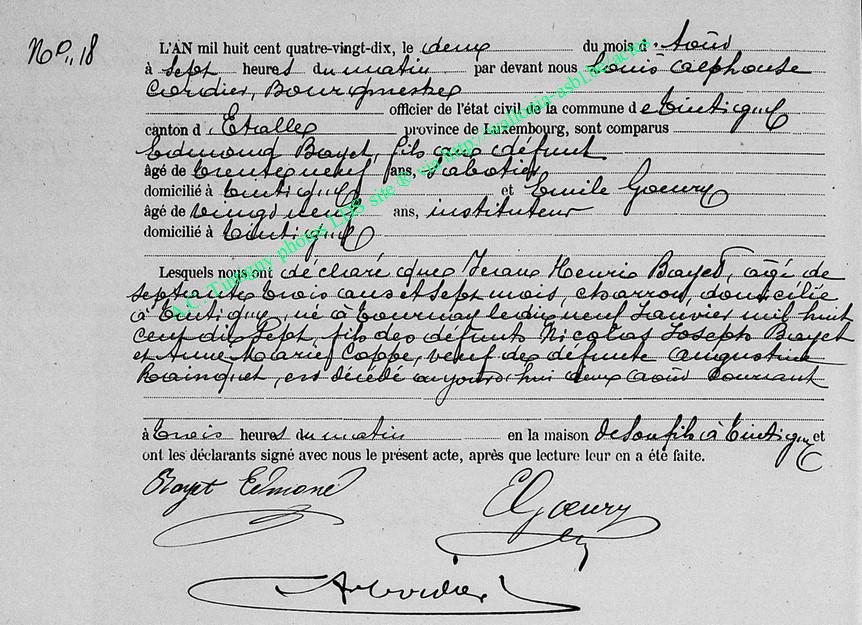 No. 18
L'AN mil huit cent quatre-vingt-dix, le deux du mois d'Août
à sept heures du matin par devant nous Louis Alphonse
Cordier, Bourgmestre
officier de l'état civil de la commune de Tintigny
canton d'Etalle province de Luxembourg, sont comparus
Edmond Bayet, fils au défunt
âgé de trente neuf ans, Sabotier
domicilié à Tintigny et Emile Goeury
âgé de vingt neuf ans, instituteur
domicilié à Tintigny
Lesquels nous ont déclaré que Jean Henri Bayet, âgé de
septante trois ans et sept mois, charron, domicilié
à Tintigny, né à Tournay le dix neuf Janvier mil huit
cent dix sept, fils des défunts Nicolas Joseph Bayet
et Anne Marie Coppe, veuf de défunte Augustine
est décédé aujourd'hui deux août courant
à trois heures du matin en la maison de son fils à Tintigny et
ont les déclarants signé avec nous le présent acte, après que lecture leur en a été faite.
Bayet Edmond
EGoeury
A Cordier
A.C. Tintigny photos LDS site ® via http://wallonia-asbl.be/actes